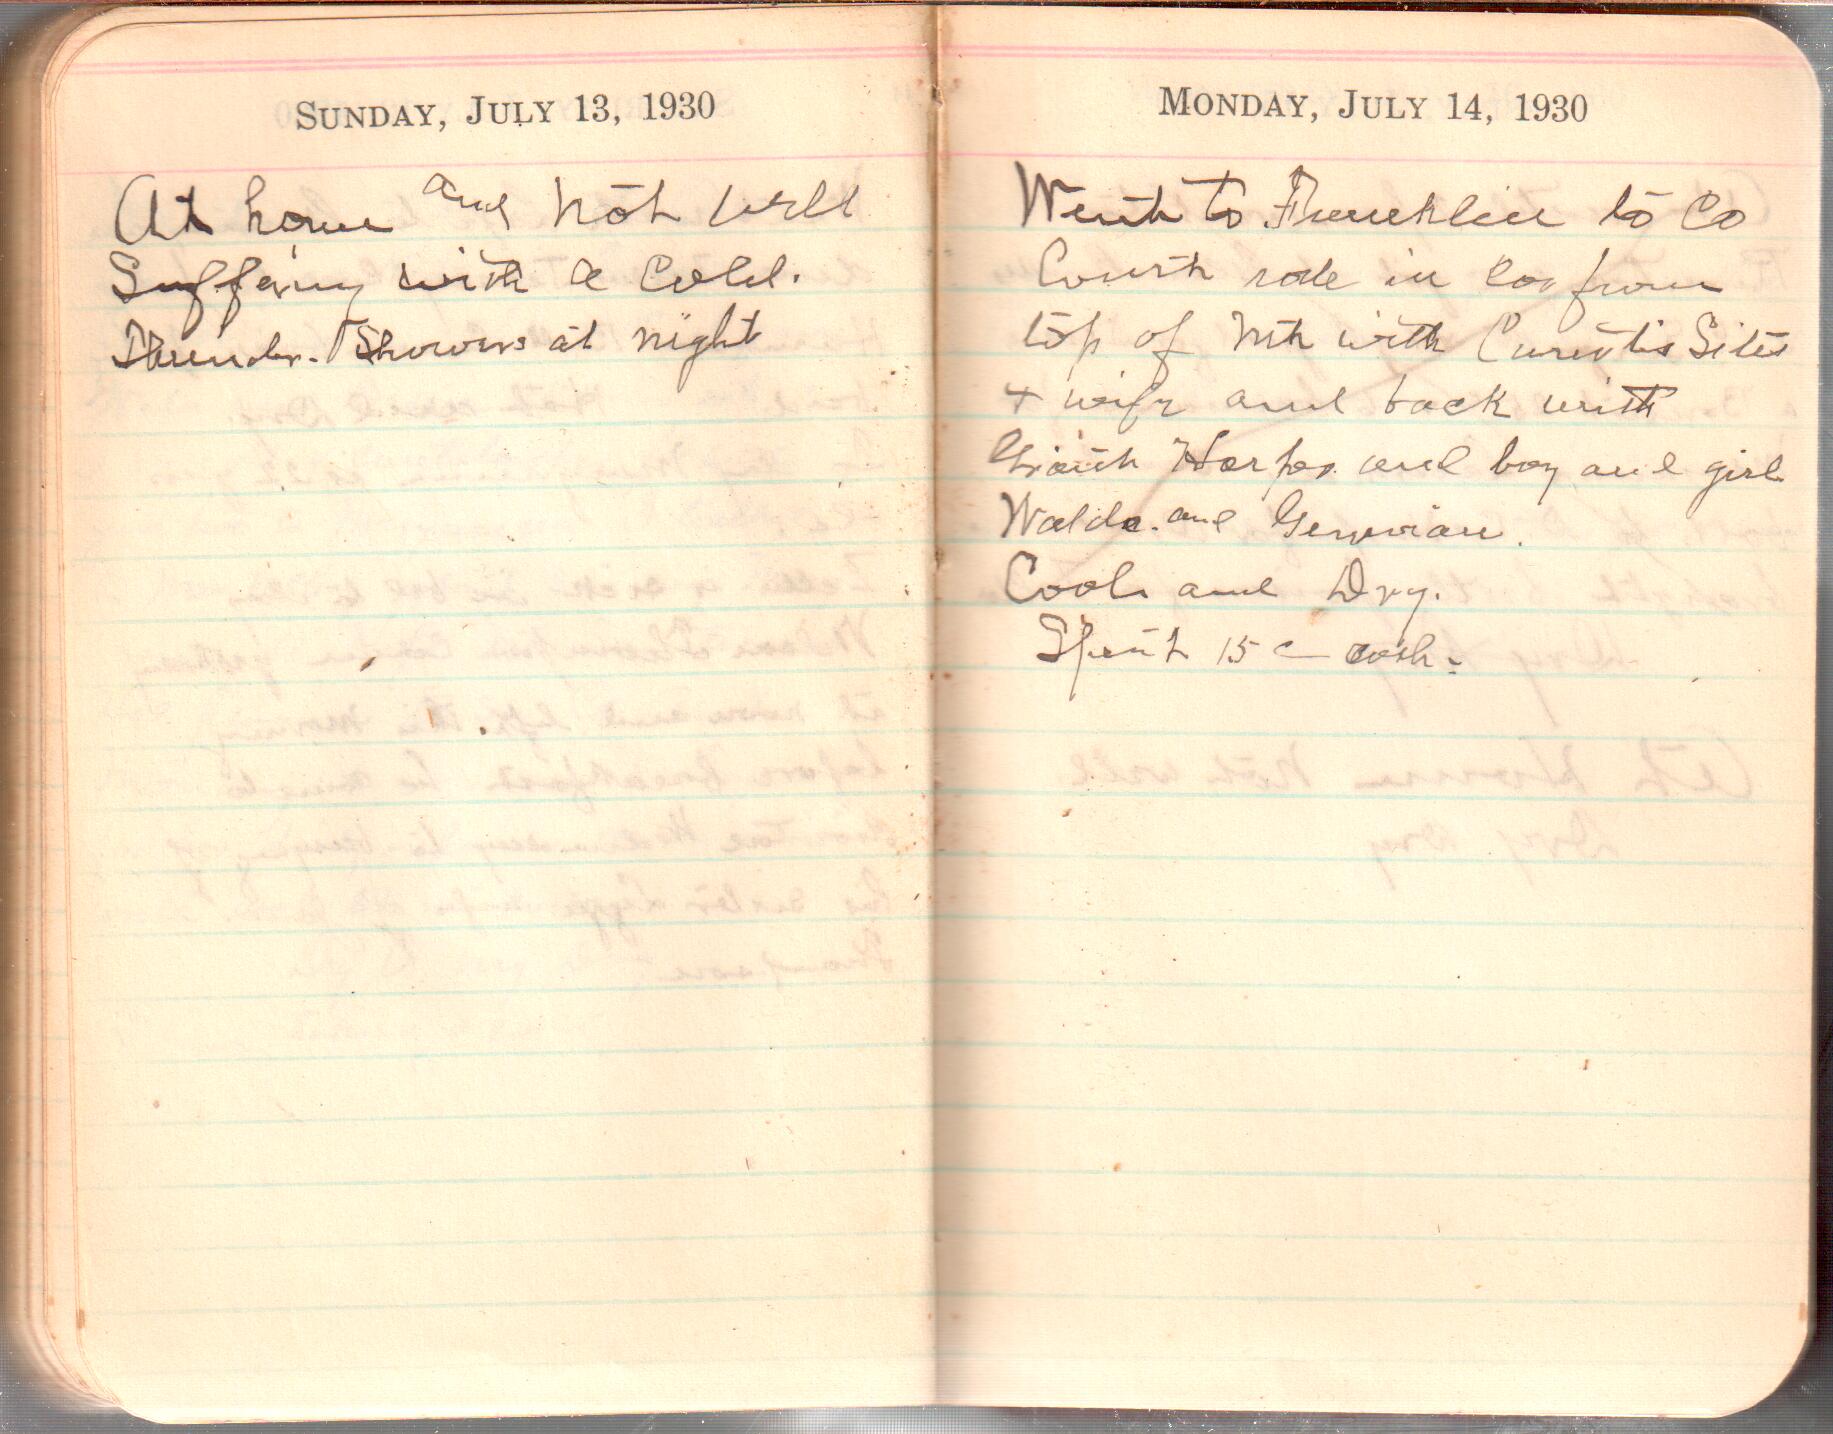 SUNDAY, JULY 13, 1930
At home and not well
Suffering with a Cold.
Thunder. Showers at night
MONDAY, JULY 14, 1930
Went to Franklin to Co
Court rode in car from
top of Mt with Curtis Sites
+ wife and back with
Harper and boy and girl
Waldo. and
Cool and Dry.
Spent 15 c cash.